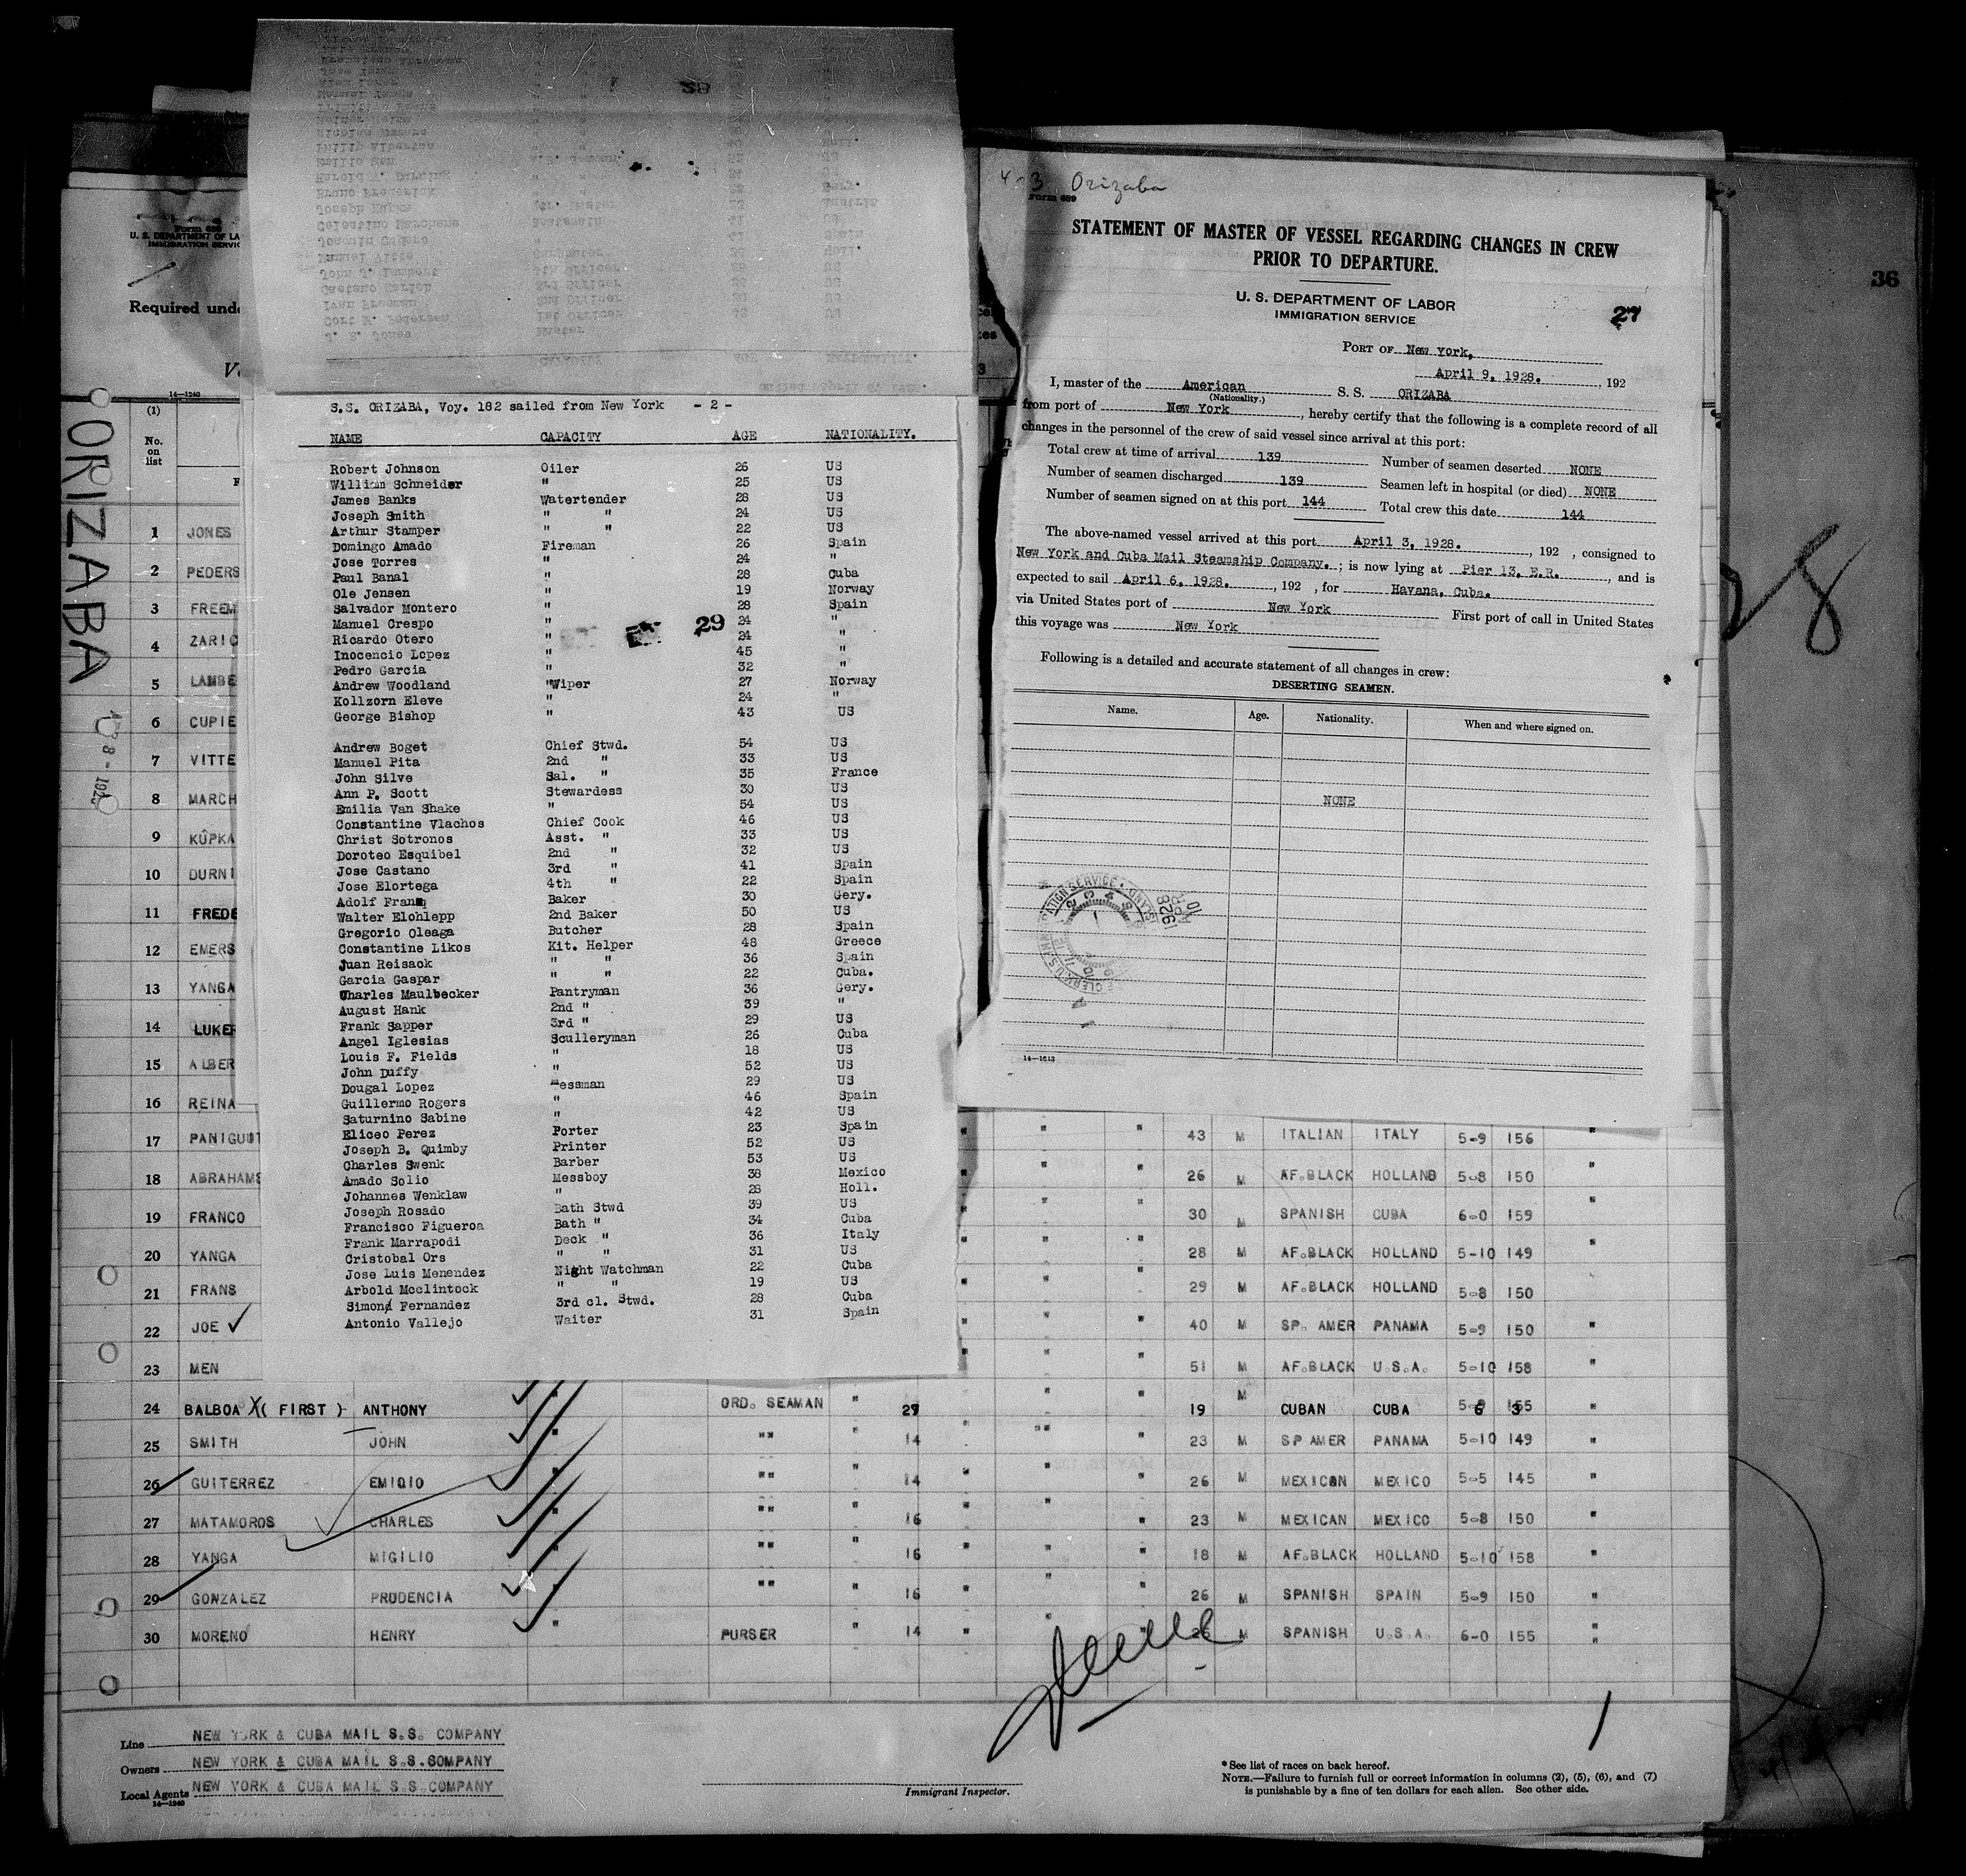 Form 689
U. S. DEPARTMENT OF LA
IMMIGRATION SERVIC
Required unde
14—1240
(1)
No.
on
list
ORIZABA
1 JONES
2 PEDERS
3 FREEM
4 ZARIC
5 LAMBE
6 CUPIE
7 VITTE
8 MARCH
9 KUPKA
10 DURNI
11 FREDE
12 EMERS
13 YANGA
14 LUKE
15 ALBER
16 REINA
17 PANIGUIT
18 ABRAHAMS
19 FRANCO
20 YANGA
21 FRANS
22 JOE
23 MEN
S.S. ORIZABA, Voy. 182 sailed from New York - 2 -
NAME CAPACITY AGE NATIONALITY.
Robert Johnson Oiler 26 US
William Schneider " 25 US
James Banks Watertender 28 US
Joseph Smith " " 24 US
Arthur Stamper " " 22 US
Domingo Amado Fireman 26 Spain
Jose Torres " 24 "
Paul Banal " 28 Cuba
Ole Jensen " 19 Norway
Salvador Montero " 28 Spain
Manuel Crespo " 24 "
29
Ricardo Otero " 24 "
Inocencio Lopez " 45 "
Pedro Garcia " 32 "
Andrew Woodland "Wiper 27 Norway
Kollzorn Eleve " 24 "
George Bishop " 43 US
Andrew Boget Chief Stwd. 54 US
Manuel Pita 2nd " 33 US
John Silve Sal. " 35 France
Ann P. Scott Stewardess 30 US
Emilia Van Shake " 54 US
Constantine Vlachos Chief Cook 46 US
Christ Sotronos Asst. " 33 US
Doroteo Esquibel 2nd " 32 US
Jose Castano 3rd " 41 Spain
Jose Elortega 4th " 22 Spain
Adolf Franm Baker 30 Gery.
Walter Elohlepp 2nd Baker 50 US
Gregorio Oleaga Butcher 28 Spain
Constantine Likos Kit. Helper 48 Greece
Juan Reisack " " 36 Spain
Garcia Gaspar " " 22 Cuba.
Charles Maulbecker Pantryman 36 Gery.
August Hank 2nd " 39 "
Frank Sapper 3rd " 29 US
Angel Iglesias Sculleryman 26 Cuba
Louis F. Fields " 18 US
John Duffy " 52 US
Dougal Lopez Messman 29 US
Guillermo Rogers " 46 Spain
Saturnino Sabine " 42 US
Eliceo Perez Porter 23 Spain
Joseph B. Quimby Printer 52 US
Charles Swenk Barber 53 US
Amado Solio Messboy 38 Mexico
Johannes Wenklaw " 28 Holl.
Joseph Rosado Bath Stwd 39 US
Francisco Figueroa Bath " 34 Cuba
Frank Marrapodi Deck " 36 Italy
Cristobal Ors " " 31 US
Jose Luis Menendez Night Watchman 22 Cuba
Arbold Mcclintock " " 19 US
Simond Fernandez 3rd cl. Stwd. 28 Cuba
Antonio Vallejo Waiter 31 Spain
4-3 Orizaba
Form 689
STATEMENT OF MASTER OF VESSEL REGARDING CHANGES IN CREW
PRIOR TO DEPARTURE.
U. S. DEPARTMENT OF LABOR
IMMIGRATION SERVICE
27
PORT OF New York,
April 9, 1928. , 192
I, master of the American S. S. ORIZABA
(Nationality.)
from port of New York, hereby certify that the following is a complete record of all
changes in the personnel of the crew of said vessel since arrival at this port:
Total crew at time of arrival 139 Number of seamen deserted NONE
Number of seamen discharged 139 Seamen left in hospital (or died) NONE
Number of seamen signed on at this port 144 Total crew this date 144
The above-named vessel arrived at this port April 3, 1928. , 192 , consigned to
New York and Cuba Mail Steamship Company. ; is now lying at Pier 13, E.R. , and is
expected to sail April 6, 1928. , 192 , for Havana, Cuba.
via United States port of New York First port of call in United States
this voyage was New York
Following is a detailed and accurate statement of all changes in crew:
DESERTING SEAMEN.
Name. Age. Nationality. When and where signed on.
NONE
14—1613
36
" " " 43 M ITALIAN ITALY 5-9 156 "
" " " 26 M AF.BLACK HOLLAND 5-8 150 "
" " " 30 M SPANISH CUBA 6-0 159 "
" " " 28 M AF.BLACK HOLLAND 5-10 149 "
" " " 29 M AF.BLACK HOLLAND 5-8 150
" " " 40 M SP. AMER PANAMA 5-9 150 "
" " " 51 M AF.BLACK U.S.A. 5-10 158 "
24 BALBOA X ( FIRST ) ANTHONY " ORD. SEAMAN " 29 " " " 19 M CUBAN CUBA "
25 SMITH JOHN " "" " 14 " "" " 23 M SP AMER PANAMA 5-10 149 "
26 GUITERREZ EMIQIO "" " 14 " " " 26 M MEXICAN MEXICO 5-5 145 "
27 MATAMOROS CHARLES " "" " 16 " " " 23 M MEXICAN MEXICO 5-8 150 "
28 YANGA MIGILIO " "" " 16 " " " 18 M AF.BLACK HOLLAND 5-10 158 "
29 GONZALEZ PRUDENCIA " "" " 16 " " " 26 M SPANISH SPAIN 5-9 150 "
30 MORENO HENRY " PURSER " 14 " " 26 M SPANISH U.S.A. 6-0 155 "
Line NEW YORK & CUBA MAIL S.S. COMPANY
Owners NEW YORK & CUBA MAIL S.S.COMPANY
Local Agents NEW YORK & CUBA MAIL S.S.COMPANY
14—1240
Immigrant Inspector.
* See list of races on back hereof.
NOTE.—Failure to furnish full or correct information in columns (2), (5), (6), and (7)
is punishable by a fine of ten dollars for each alien. See other side.